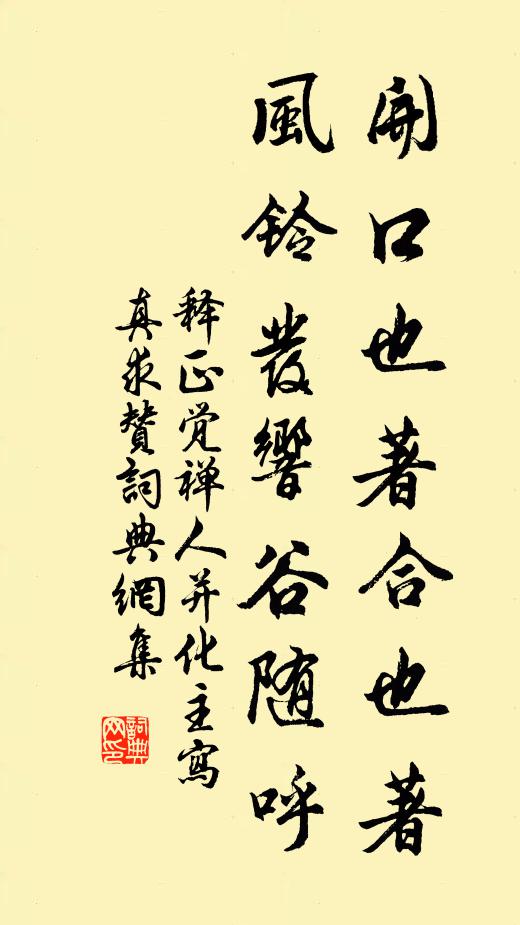 開口也著合也著
風鈴發響谷随呼
释正觉禅人并化主寫
真求贊詞典網集
詞典
网印